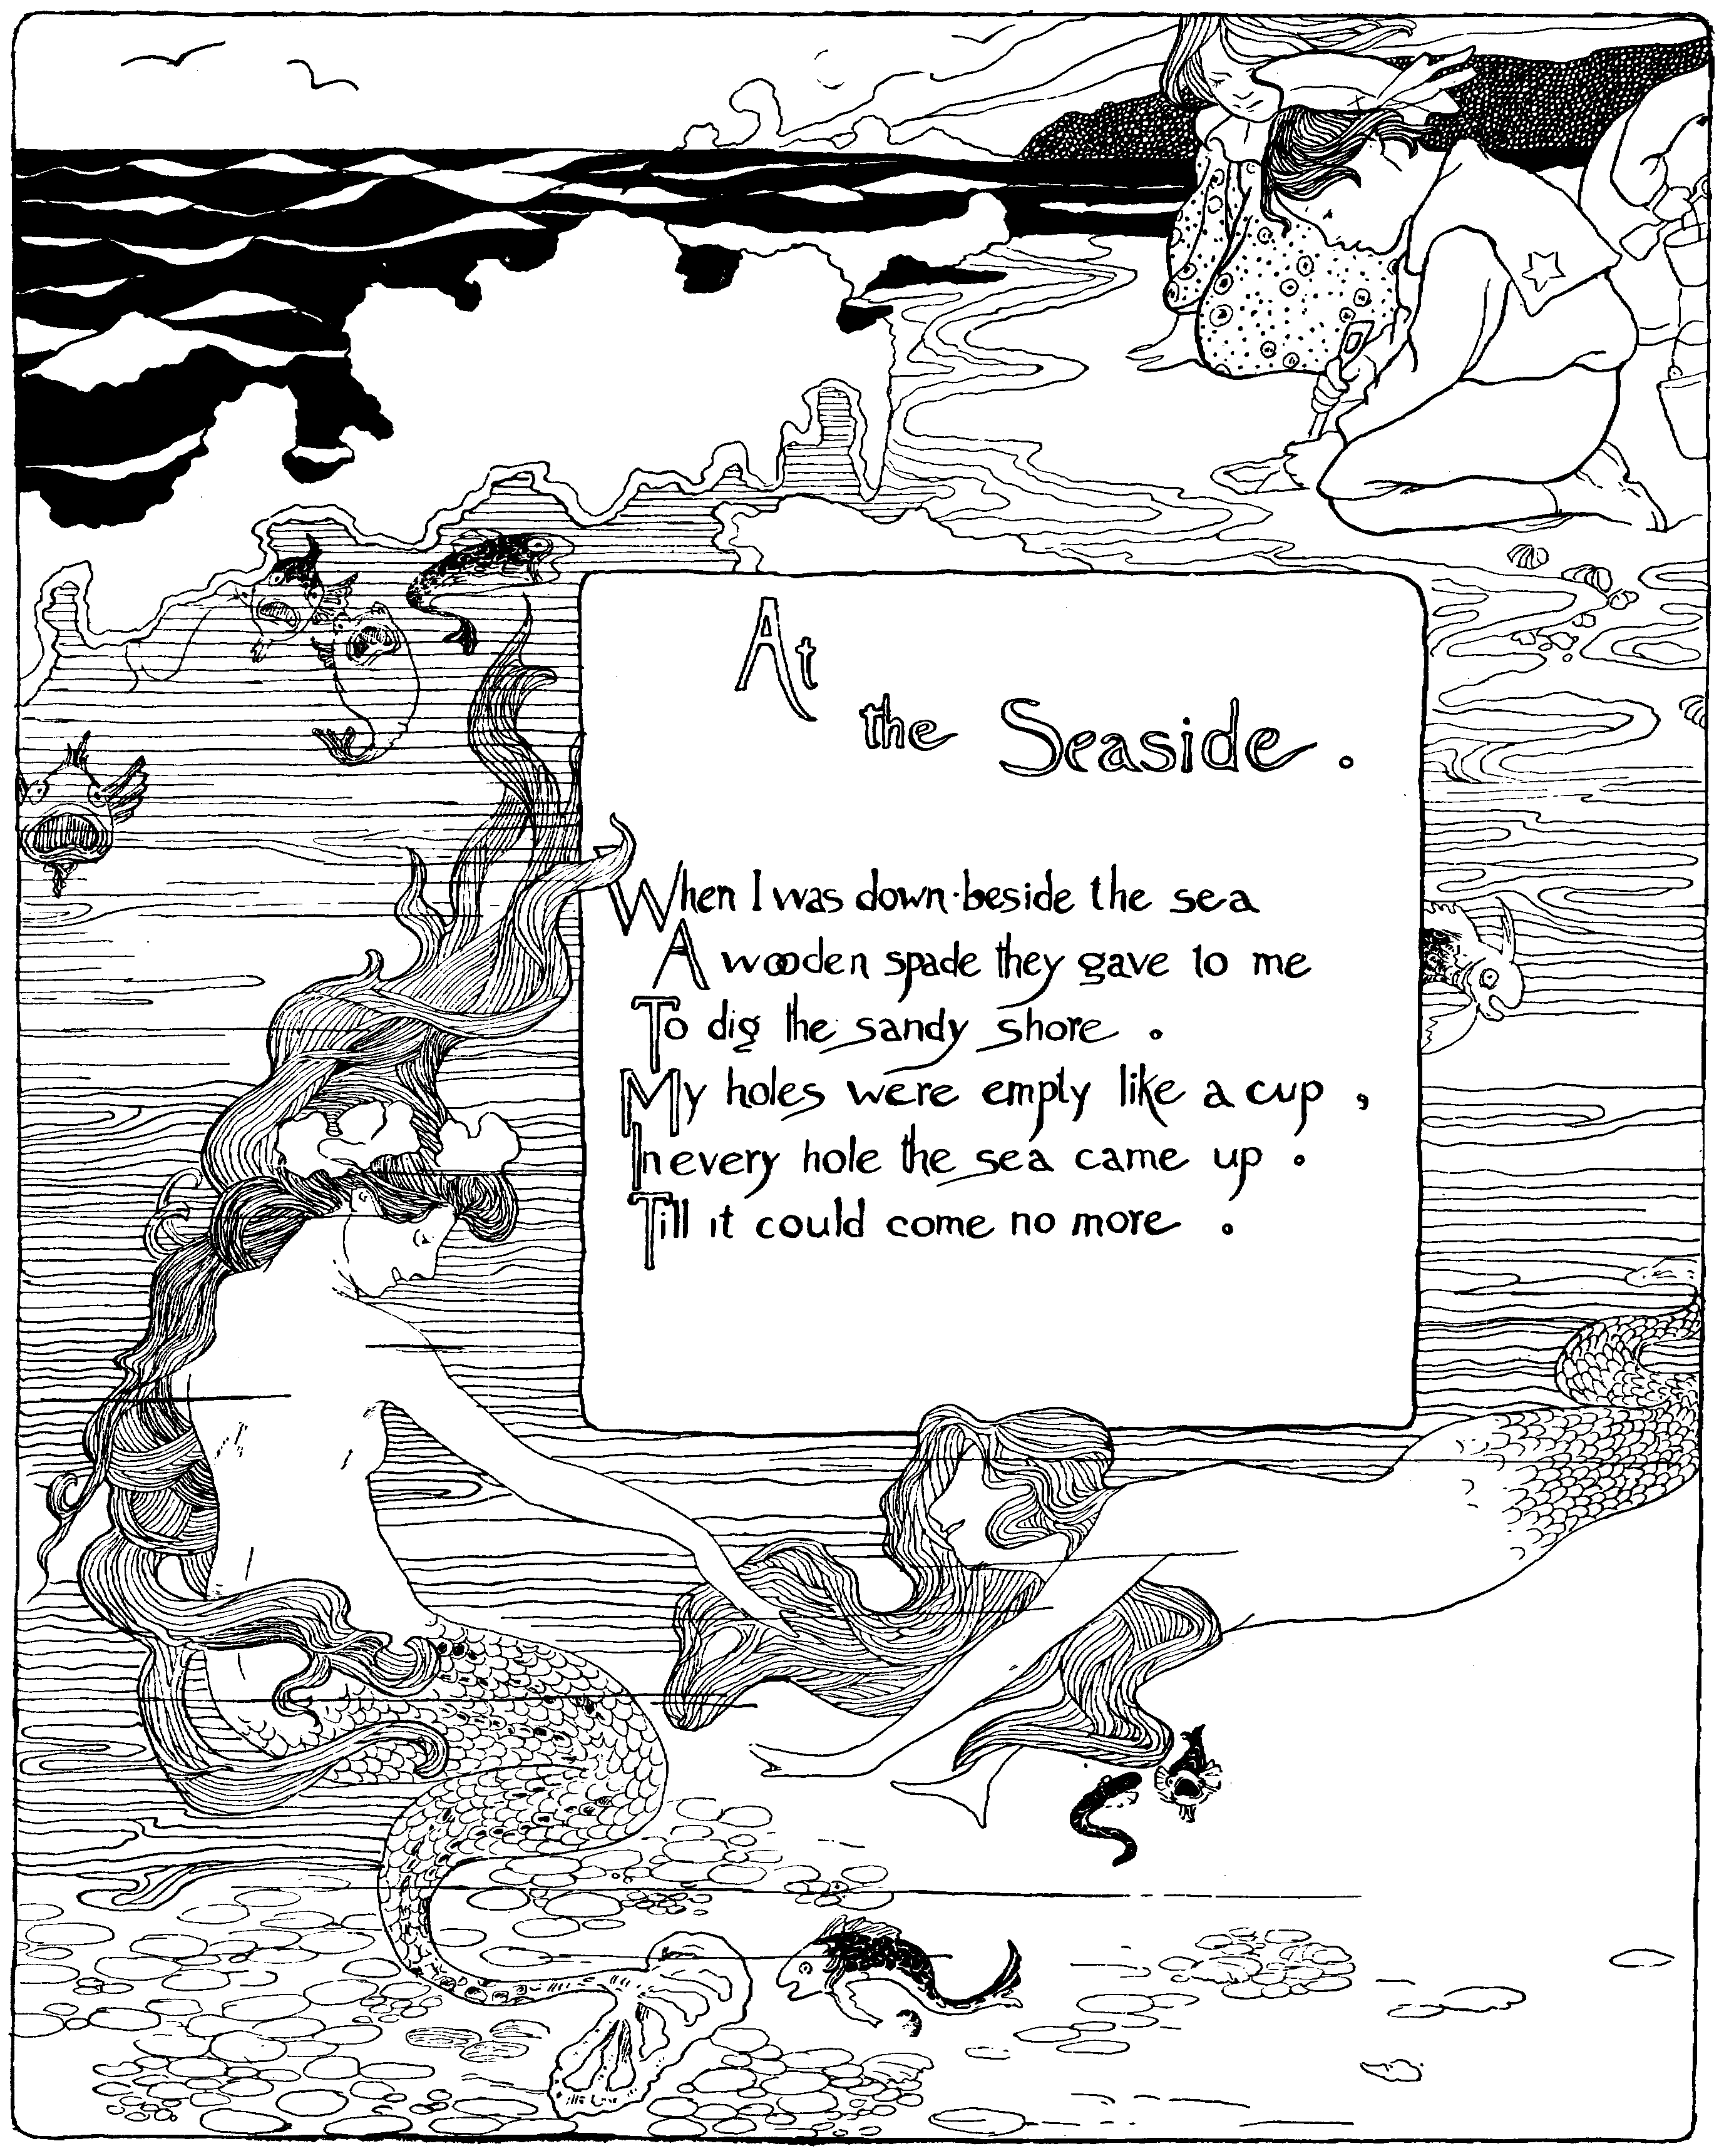 At
the Seaside.
When I was down beside the sea
A wooden spade they gave to me
To dig the sandy shore.
My holes were empty like a cup,
In every hole the sea came up.
Till it could come no more.